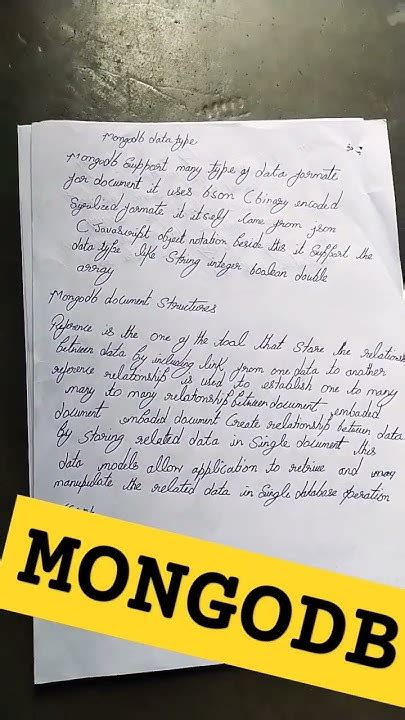 Mongodb data type
Mongodb Support many type of data formate
for document it uses bson (binary encoded
formate it itself came from json
( Javascript object notation beside this it Support the
data type like String integer boolean double
array
Mongodb document Structures
Reference is the one of the tool that Store the relations
between data by including link from one data to another
reference relationship is used to establish one to many
many to many relationship between document embaded
document embaded document Create relationship between data
by Storing related data in Single document this
data models allow application to retrive and
manupulate the related data in Single database operation
MONGODB